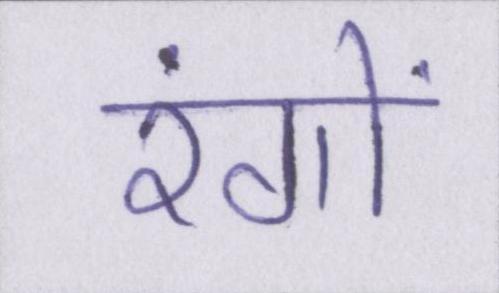 रंगों